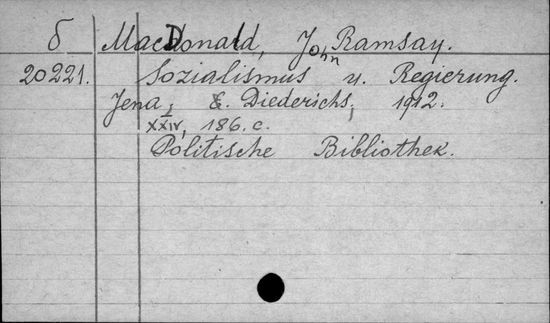 б MacDonald, John Ramsay.
20221. Sozialismus u. Regierung.
Jena, E. Diederichs, 1912.
XXIV, 186. c.
Politische Bibliothek.